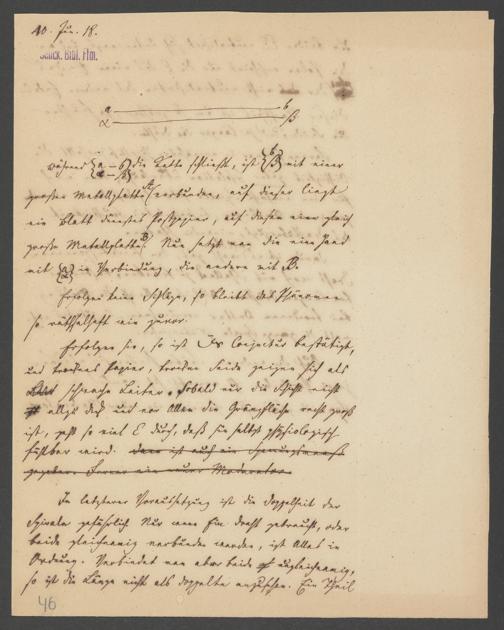 10. Jun. 18.
Senck. Bibl. Ffm.
a b
α β
während {a – b / α – β} die Kette schließt, ist {b / β} mit einer
großen Metallplatte A verbunden, auf dieser liegt
ein Blatt dünnstes Postpapier, auf diesem eine gleich
große Metallplatte B. Nun setzt man die eine Hand
mit in Verbindung, die andere mit B.
Erfolgen keine Schläge, so bleibt das Phänomen
so räthselhaft wie zuvor.
Erfolgen sie, so ist Conjectur bestätigt,
und trockenes Papier, trockne Seide zeigen sich als
schwache Leiter. Sobald nur die Schicht nicht
allzu dick und vor Allem die Gränzfläche recht groß
ist, geht so viel E durch, daß sie selbst physiologisch
fühlbar wird. Dann ist auch ein
gegeben. Ferner ein neuer Moderator.
In letzterer Voraussetzung ist die Doppelheit der
Spirale gefährlich. Nur wenn Ein Draht gebraucht, oder
beide gleichnamig verbunden werden, ist Alles in
Ordnung. Verbindet man aber beide ungleichnamig,
so ist die Länge nicht als doppelte anzusehen. Ein Theil
46